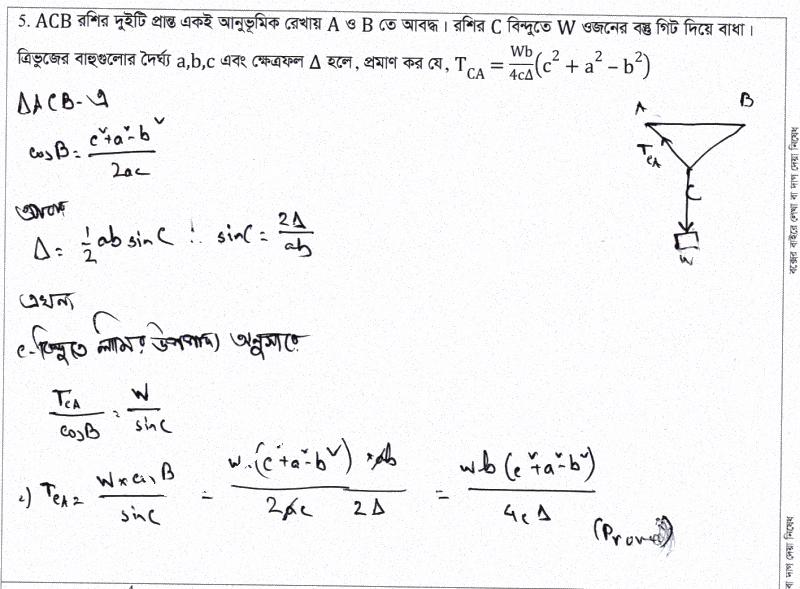 5. ACB রশির দুইটি প্রান্ত একই আনুভূমিক রেখায় A ও B তে আবদ্ধ। রশির C বিন্দুতে W ওজনের বস্তু গিট দিয়ে বাধা।
ত্রিভুজের বাহুগুলোর দৈর্ঘ্য a,b,c এবং ক্ষেত্রফল Δ হলে, প্রমাণ কর যে, T_CA = Wb/4cΔ (c² + a² − b²)
ΔACB-এ
cosB = (c² + a² - b²)/2ac
A B
T_CA
C
W
Δ = 1/2 ab sinC ∴ sinC = 2Δ/ab
এখন
C-বিন্দুতে লামির উপপাদ্য অনুসারে
T_CA/cosB = W/sinC
⇒ T_CA = W × cosB/sinC = W·(c² + a² - b²) × ab/2ac 2Δ = Wb(c² + a² - b²)/4cΔ
(Proved)
বক্সের বাইরে লেখা বা দাগ দেয়া নিষেধ
বা দাগ দেয়া নিষেধ